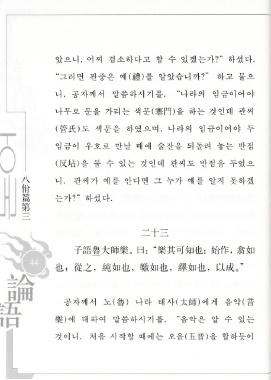 았으니, 어찌 검소하다고 할 수 있겠는가?" 하셨다.
"그러면 관중은 예(禮)를 알았습니까?" 하고 물으
니, 공자께서 말씀하시기를, "나라의 임금이어야
나무로 문을 가리는 색문(塞門)을 하는 것인데 관씨
(管氏)도 색문을 하였으며, 나라의 임금이어야 두
임금이 우호로 만날 때에 술잔을 되돌려 놓는 반점
(反坫)을 둘 수 있는 것인데 관씨도 반점을 두었으
니, 관씨가 예를 안다면 그 누가 예를 알지 못하겠
는가?" 하셨다.
二十三
子語魯大師樂。曰: "樂其可知也; 始作, 翕如
也; 從之, 純如也, 皦如也, 繹如也, 以成。"
공자께서 노(魯) 나라 태사(太師)에게 음악(音
樂)에 대하여 말씀하시기를, "음악은 알 수 있는
것이니, 처음 시작할 때에는 오음(五音)을 합하듯이
八佾篇第三
44
論語